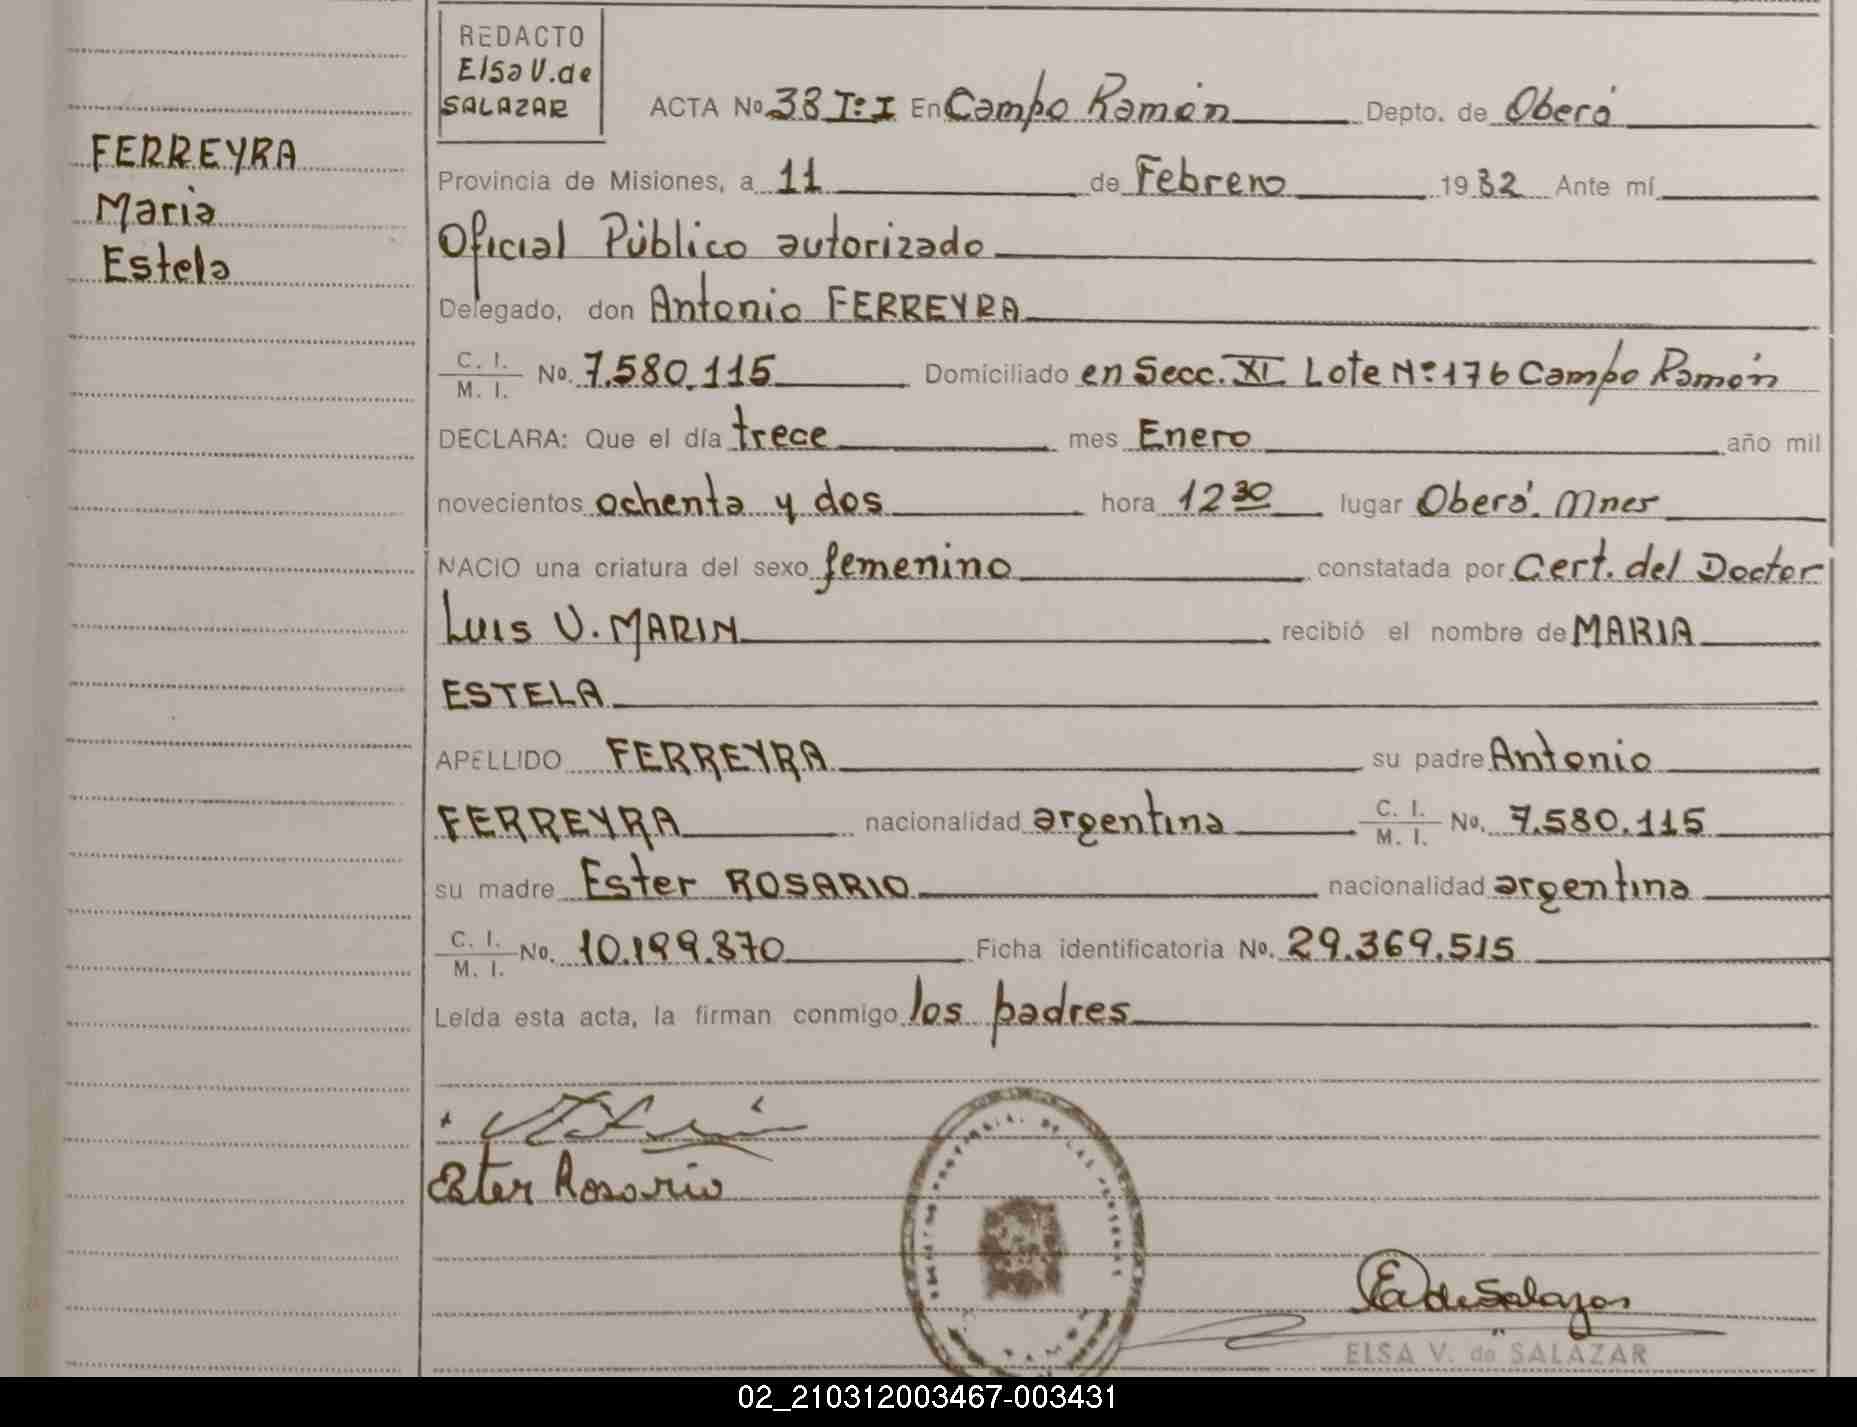 REDACTO
Elsa V. de
SALAZAR
ACTA No. 38 Tº I En Campo Ramón Depto. de Oberá
FERREYRA
Maria
Estela
Provincia de Misiones, a 11 de Febrero 1982 Ante mí
Oficial Público autorizado
Delegado, don Antonio FERREYRA
C. I.
M. I. No. 7.580.115 Domiciliado en Secc. XI Lote Nº 176 Campo Ramón
DECLARA: Que el día trece mes Enero año mil
novecientos ochenta y dos hora 12 30 lugar Oberá. Mnes
NACIO una criatura del sexo femenino constatada por Cert. del Doctor
Luis V. MARIN recibió el nombre de MARIA
ESTELA
APELLIDO FERREYRA su padre Antonio
FERREYRA nacionalidad argentina C. I.
M. I. No. 7.580.115
su madre Ester ROSARIO nacionalidad argentina
C. I.
M. I. No. 10.199.870 Ficha identificatoria No. 29.369.515
Leída esta acta, la firman conmigo los padres
Ester Rosario
E de Salazar
ELSA V. de SALAZAR
02_210312003467-003431